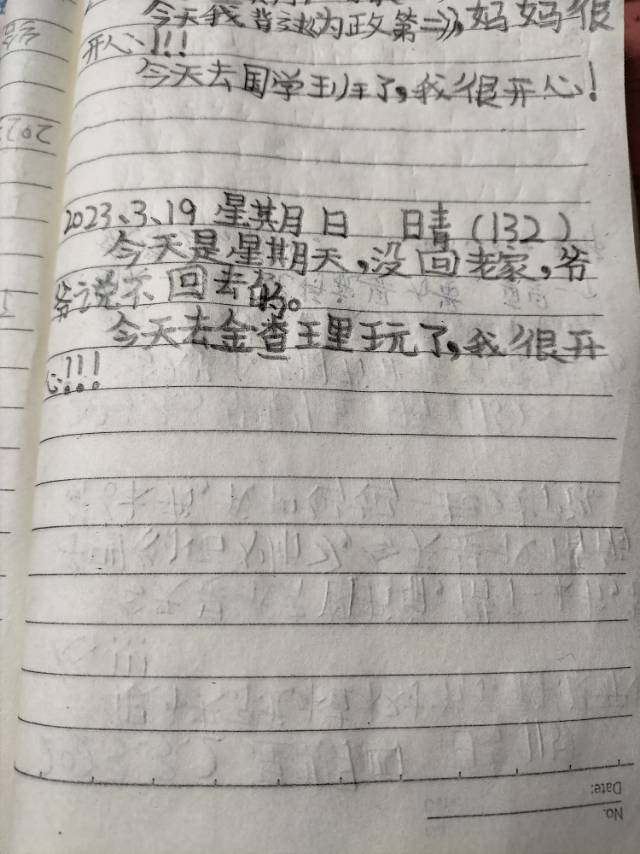 今天我背该为政第二了,妈妈很
开心!!!
今天去国学班了,我很开心!
2023、3、19 星期日 晴(132)
今天是星期天,没回老家,爷
爷说不回去的。
今天去金查王里玩了,我很开
心!!!
Date:
No.